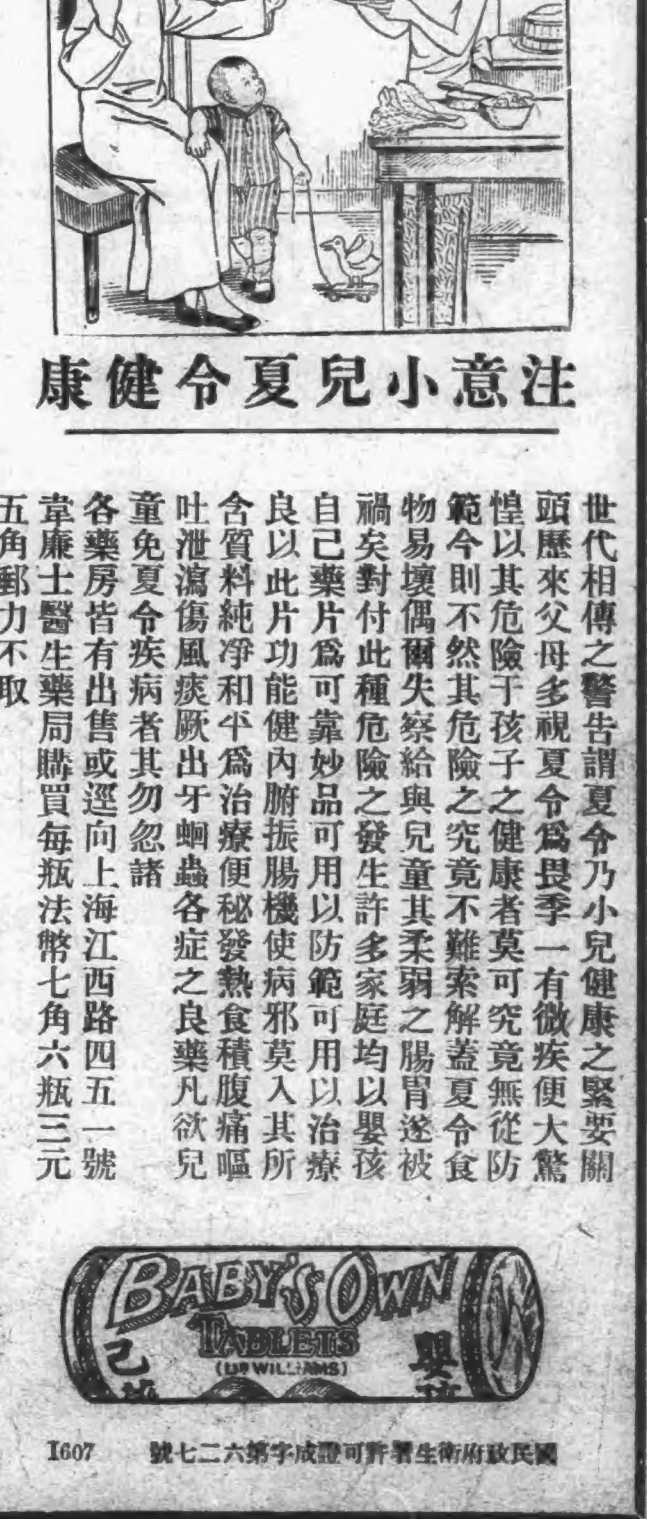 注意小兒夏令健康
世代相傳之警告謂夏令乃小兒健康之緊要關
頭歷來父母多視夏令爲畏季一有微疾便大驚
惶以其危險于孩子之健康者莫可究竟無從防
範今則不然其危險之究竟不難索解蓋夏令食
物易壞偶爾失察給與兒童其柔弱之腸胃遂被
禍矣對付此種危險之發生許多家庭均以嬰孩
自己藥片爲可靠妙品可用以防範可用以治療
良以此片功能健內腑振腸機使病邪莫入其所
含質料純淨和平爲治療便秘發熱食積腹痛嘔
吐泄瀉傷風痰厥出牙蛔蟲各症之良藥凡欲兒
童免夏令疾病者其勿忽諸
各藥房皆有出售或逕向上海江西路四五一號
韋廉士醫生藥局購買每瓶法幣七角六瓶三元
五角郵力不取
BABY'S OWN
TABLETS
(DR WILLIAMS)
嬰
己
國民政府衛生署許可證成字第六二七號
1607